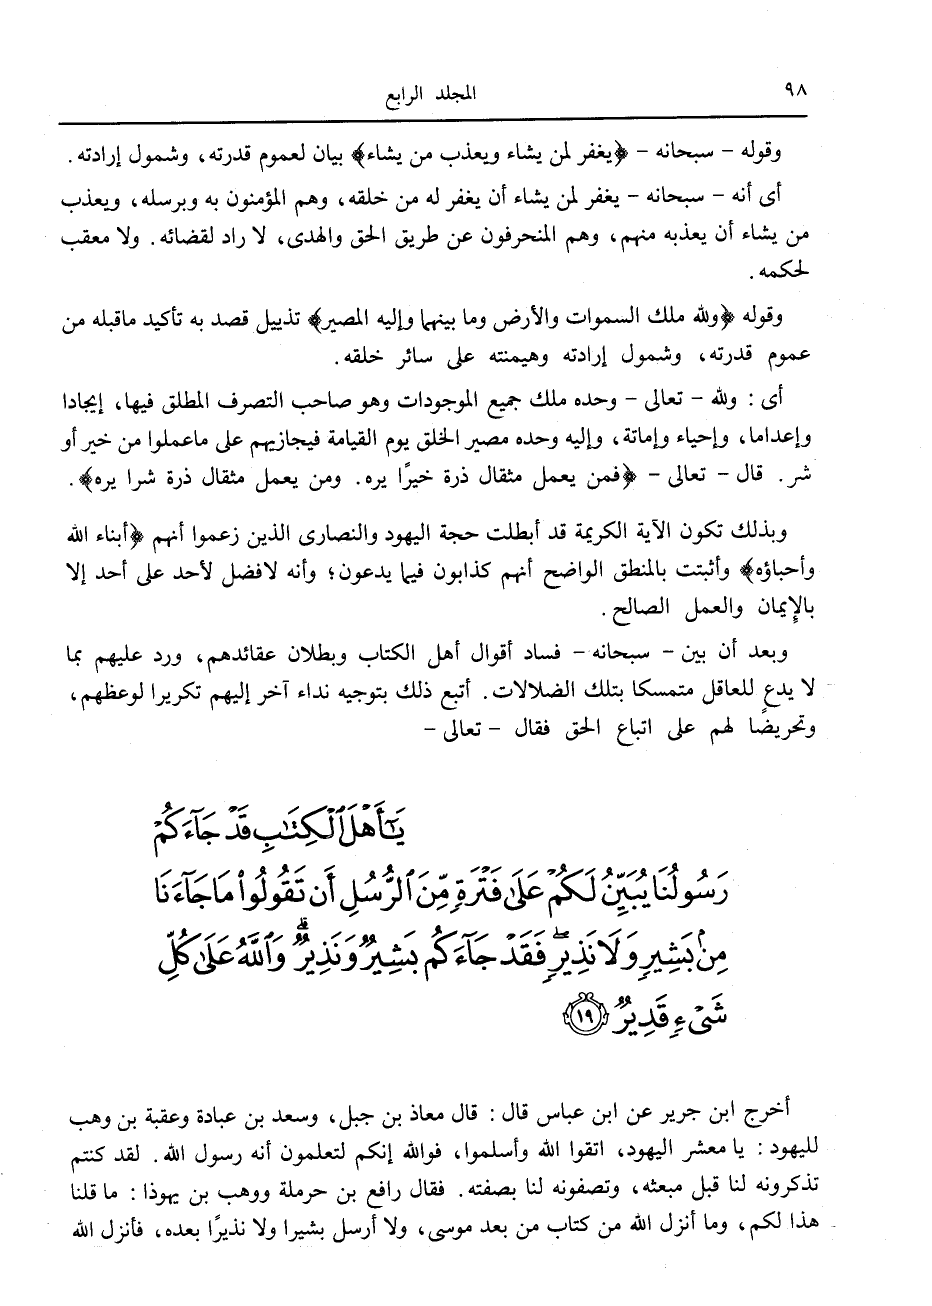 ٩٨
المجلد الرابع
وقوله – سبحانه – ﴿يغفر لمن يشاء ويعذب من يشاء﴾ بيان لعموم قدرته، وشمول إرادته.
أى أنه – سبحانه – يغفر لمن يشاء أن يغفر له من خلقه، وهم المؤمنون به وبرسله، ويعذب
من يشاء أن يعذبه منهم، وهم المنحرفون عن طريق الحق والهدى، لا راد لقضائه. ولا معقب
لحكمه.
وقوله ﴿ولله ملك السموات والأرض وما بينهما وإليه المصير﴾ تذييل قصد به تأكيد ماقبله من
عموم قدرته، وشمول إرادته وهيمنته على سائر خلقه.
أى : ولله – تعالى – وحده ملك جميع الموجودات وهو صاحب التصرف المطلق فيها، إيجادا
وإعداما، وإحياء وإماتة، وإليه وحده مصير الخلق يوم القيامة فيجازيهم على ماعملوا من خير أو
شر. قال – تعالى – ﴿فمن يعمل مثقال ذرة خيرًا يره. ومن يعمل مثقال ذرة شرا يره﴾.
وبذلك تكون الآية الكريمة قد أبطلت حجة اليهود والنصارى الذين زعموا أنهم ﴿أبناء الله
وأحباؤه﴾ وأثبتت بالمنطق الواضح أنهم كذابون فيما يدعون؛ وأنه لافضل لأحد على أحد إلا
بالإيمان والعمل الصالح.
وبعد أن بين – سبحانه – فساد أقوال أهل الكتاب وبطلان عقائدهم، ورد عليهم بما
لا يدع للعاقل متمسكا بتلك الضلالات. أتبع ذلك بتوجيه نداء آخر إليهم تكريرا لوعظهم،
وتحريضًا لهم على اتباع الحق فقال – تعالى –
يَٰٓأَهْلَ ٱلْكِتَٰبِ قَدْ جَآءَكُمْ
رَسُولُنَا يُبَيِّنُ لَكُمْ عَلَىٰ فَتْرَةٍ مِّنَ ٱلرُّسُلِ أَن تَقُولُوا۟ مَا جَآءَنَا
مِنۢ بَشِيرٍ وَلَا نَذِيرٍ ۖ فَقَدْ جَآءَكُم بَشِيرٌ وَنَذِيرٌ ۗ وَٱللَّهُ عَلَىٰ كُلِّ
شَىْءٍ قَدِيرٌ ﴿١٩﴾
أخرج ابن جرير عن ابن عباس قال : قال معاذ بن جبل، وسعد بن عبادة وعقبة بن وهب
لليهود : يا معشر اليهود، اتقوا الله وأسلموا، فوالله إنكم لتعلمون أنه رسول الله. لقد كنتم
تذكرونه لنا قبل مبعثه، وتصفونه لنا بصفته. فقال رافع بن حرملة ووهب بن يهوذا : ما قلنا
هذا لكم، وما أنزل الله من كتاب من بعد موسى، ولا أرسل بشيرا ولا نذيرًا بعده، فأنزل الله